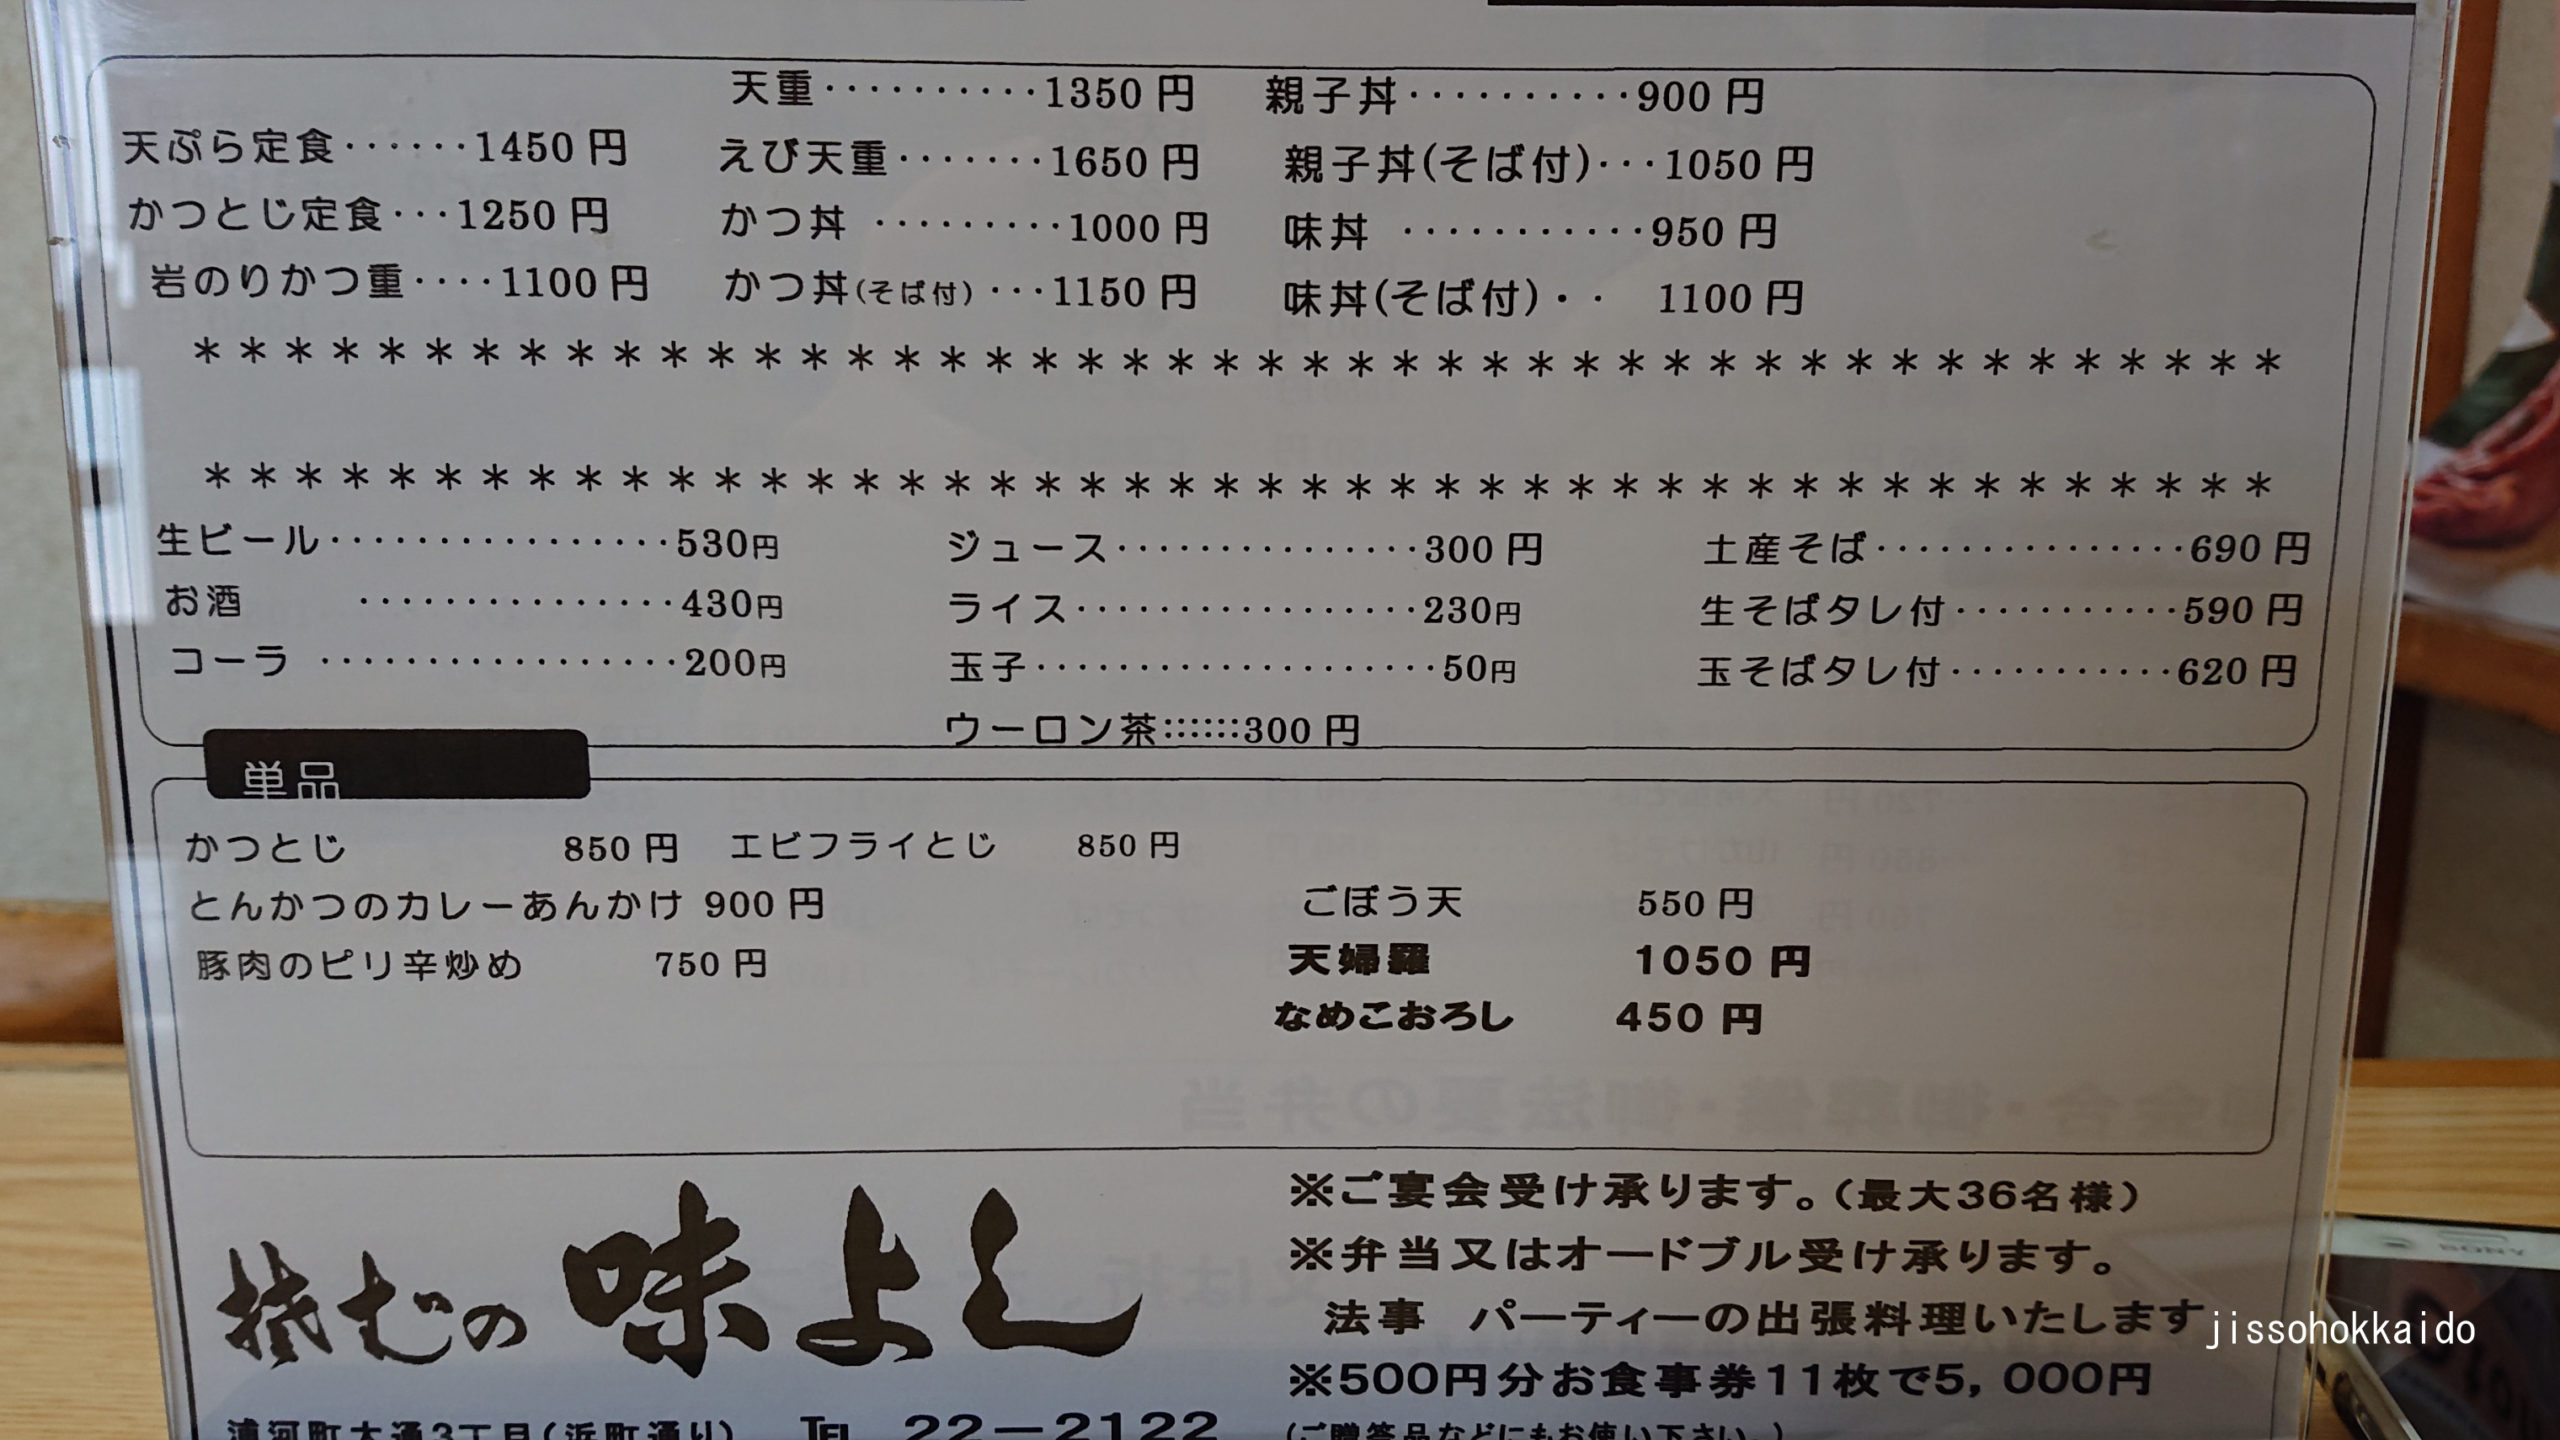 天重・・・・・・・・・・1350 円
親子丼・・・・・・・・・・900 円
天ぷら定食・・・・・・1450 円
えび天重・・・・・・・1650 円
親子丼(そば付)・・・1050 円
かつとじ定食・・・1250 円
かつ丼 ・・・・・・・・・1000 円
味丼 ・・・・・・・・・・・950 円
岩のりかつ重・・・・1100 円
かつ丼(そば付)・・・1150 円
味丼(そば付)・・ 1100 円
＊＊＊＊＊＊＊＊＊＊＊＊＊＊＊＊＊＊＊＊＊＊＊＊＊＊＊＊＊＊＊＊＊＊＊＊＊＊＊＊＊＊＊＊＊＊
＊＊＊＊＊＊＊＊＊＊＊＊＊＊＊＊＊＊＊＊＊＊＊＊＊＊＊＊＊＊＊＊＊＊＊＊＊＊＊＊＊＊＊＊＊＊
生ビール・・・・・・・・・・・・・・・・530円
ジュース・・・・・・・・・・・・・・300 円
土産そば・・・・・・・・・・・・・・・690 円
お酒 ・・・・・・・・・・・・・・・430円
ライス・・・・・・・・・・・・・・・・230円
生そばタレ付・・・・・・・・・・・590 円
コーラ ・・・・・・・・・・・・・・・・・200円
玉子・・・・・・・・・・・・・・・・・・・50円
玉そばタレ付・・・・・・・・・・・620 円
ウーロン茶::::::300 円
単品
かつとじ 850 円 エビフライとじ 850 円
とんかつのカレーあんかけ 900 円
ごぼう天 550 円
豚肉のピリ辛炒め 750 円
天婦羅 1050 円
なめこおろし 450 円
※ご宴会受け承ります。(最大36名様)
※弁当又はオードブル受け承ります。
法事 パーティーの出張料理いたします
※500円分お食事券11枚で5,000円
(ご贈答品などにもお使い下さい。)
むの 味よし
浦河町大通3丁目(浜町通り) TEL 22－2122
jissohokkaido
SONY